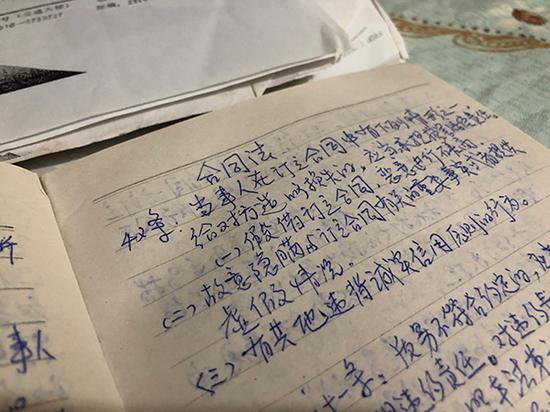 号（交通大楼）
合同法
42条：当事人在订立合同中有下列情形之一
给对方造成损失的，应当承担损害赔偿责任。
（一）假借订立合同，恶意进行磋商；
（二）故意隐瞒与订立合同有关的重要事实或者提供
虚假情况。
（三）有其他违背诚实信用原则的行为。
十一条：质量不符合约定的
违约责任。对违约责
事人